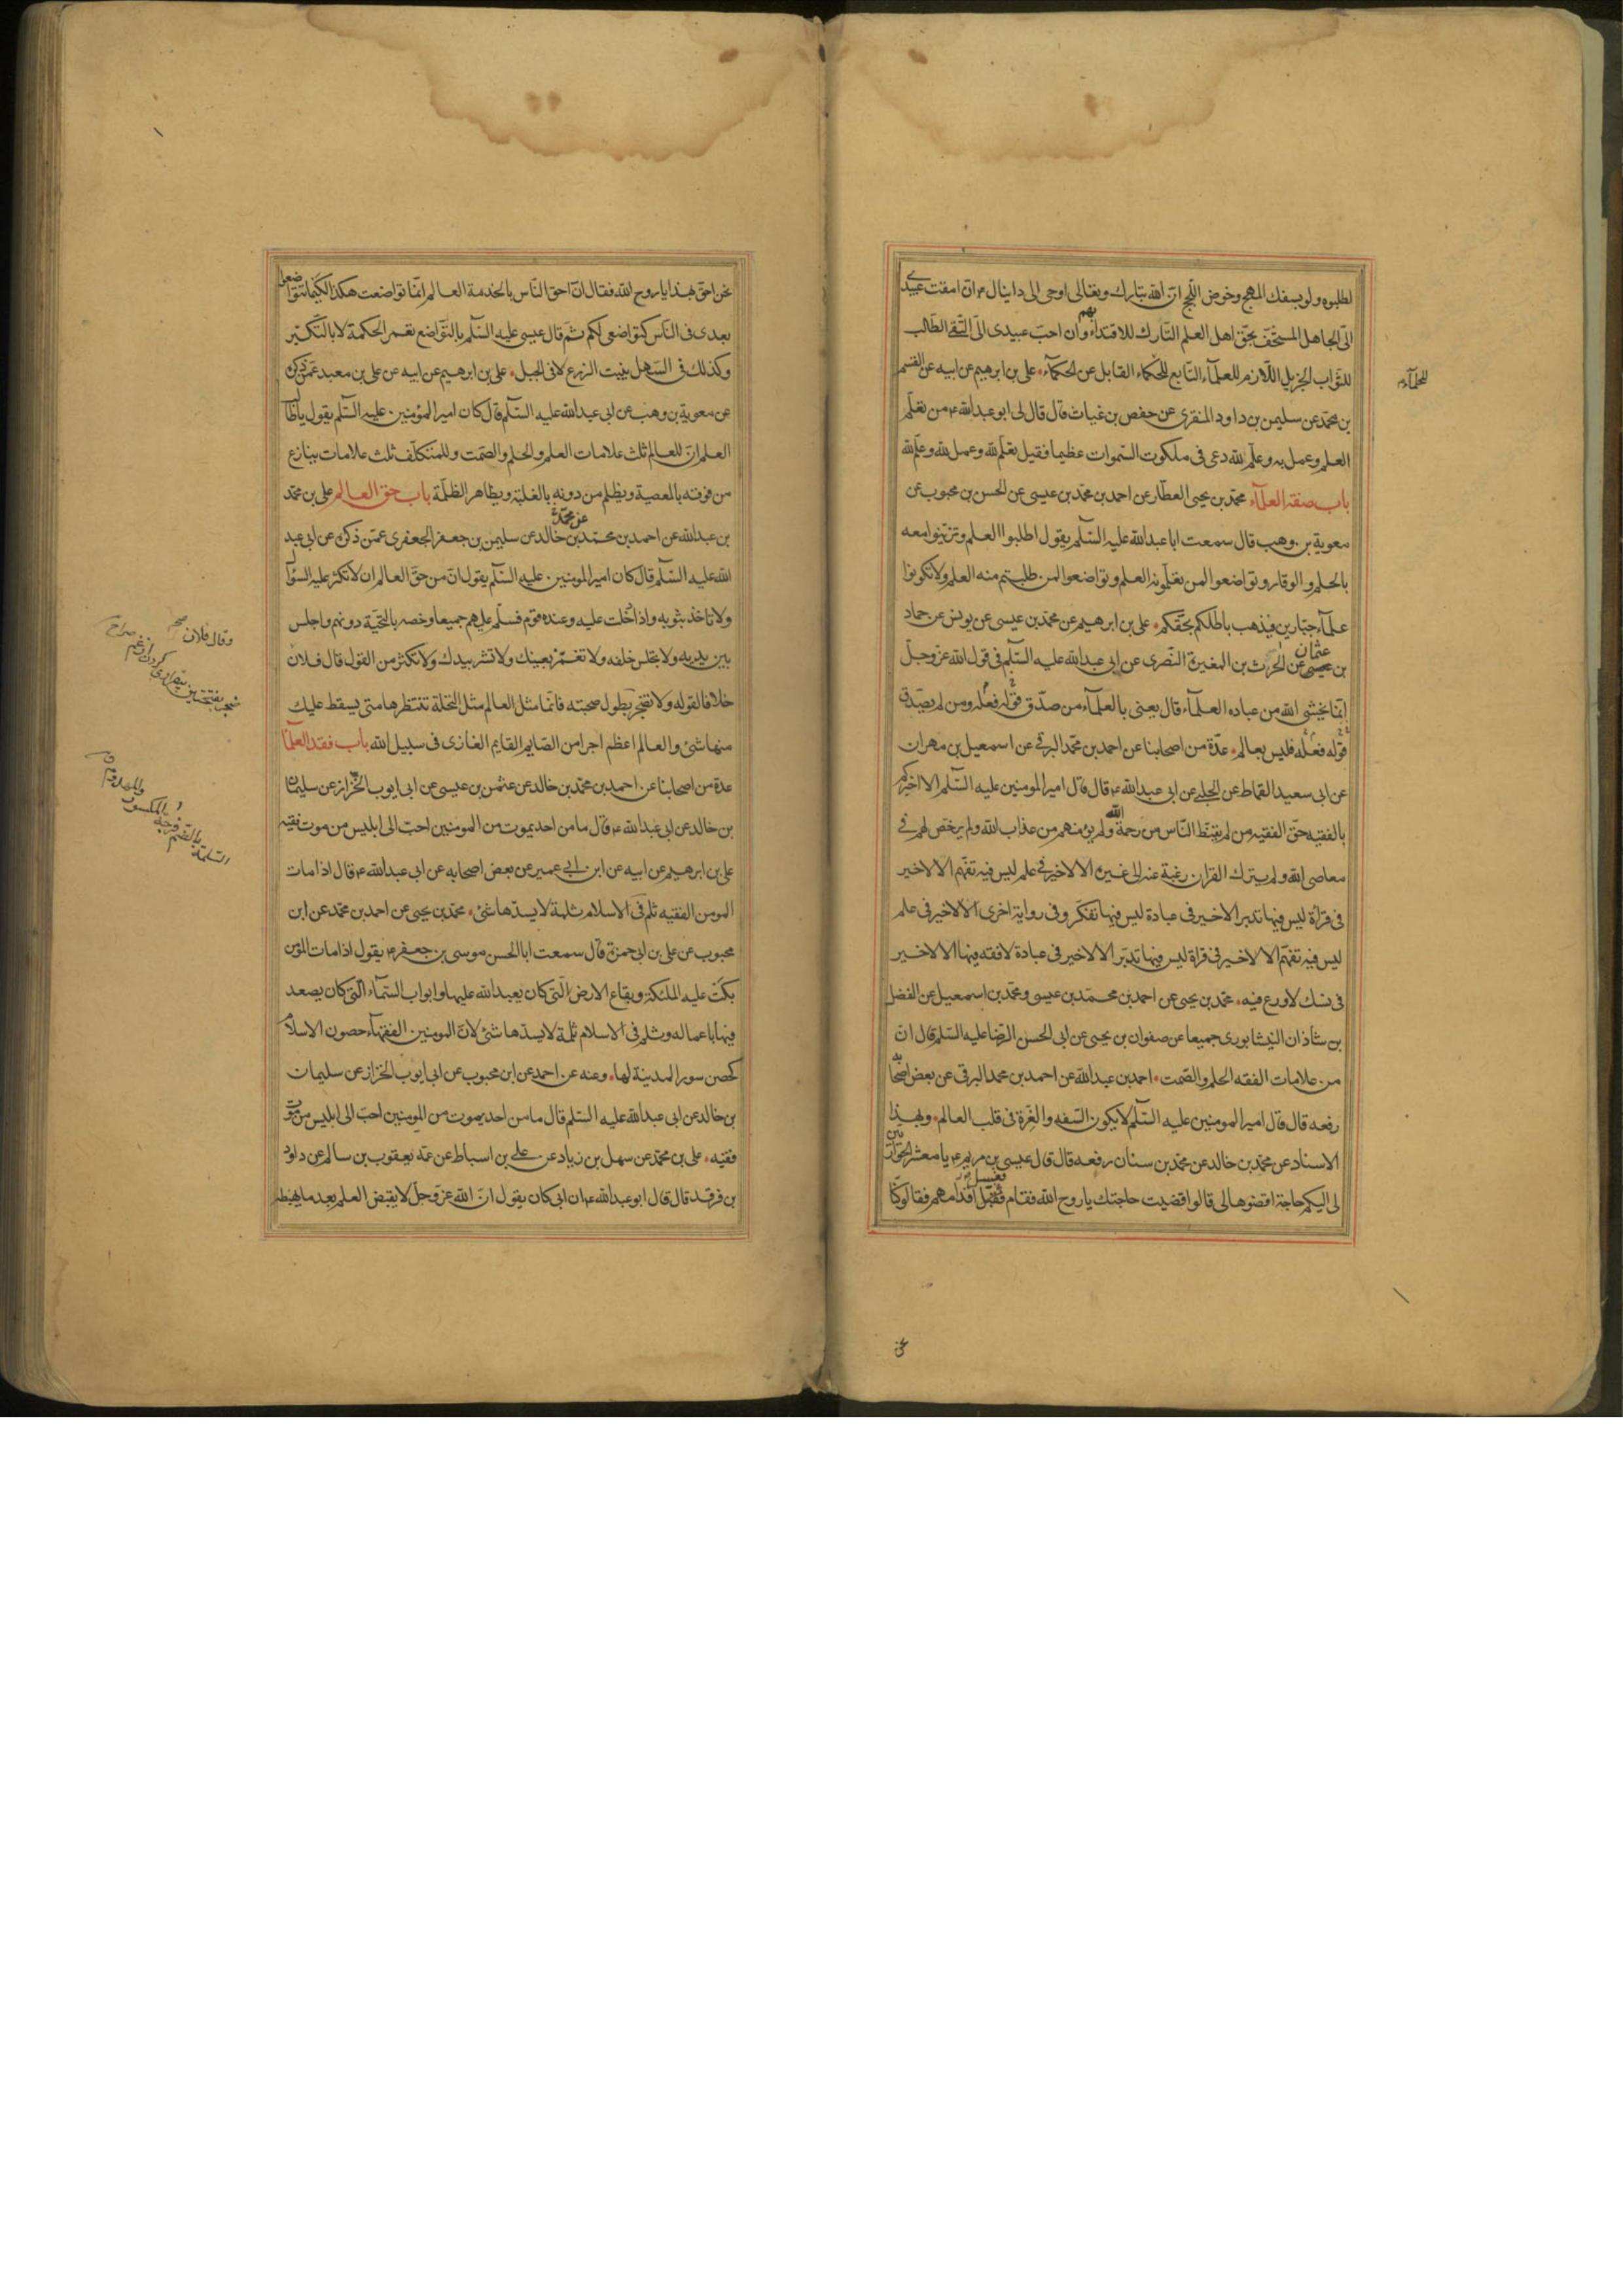 لطلبوه ولو بسفك المهج وخوض اللجج ان الله تبارك وتعالى اوحى الى دانيال ء ان امقت عبيدى
الىّ الجاهل المستخف بحق اهل العلم التارك للاقتداء بهم وان احب عبيدى الىّ التقى الطالب
للثواب الجزيل اللازم للعلمآء التابع للحكماء القابل عن الحكمآء علىّ بن ابرهيم عن ابيه عن القسم
للحلمآء
بن محمد عن سليمن بن داود المنقرى عن حفص بن غياث قال قال لى ابو عبد الله ء من تعلّم
العلم وعمل به وعلّم لله دعى فى ملكوت السموات عظيما فقيل تعلّم لله وعمل لله وعلّم لله
باب صفة العلمآء محمد بن يحيى العطّار عن احمد بن محمد بن عيسى عن الحسن بن محبوب عن
معوية بن وهب قال سمعت ابا عبد الله عليه السّلم يقول اطلبوا العلم وتزيّنوا معه
بالحلم والوقار وتواضعوا لمن تعلّمونه العلم وتواضعوا لمن طلبتم منه العلم ولا تكونوا
علمآء جبّارين فيذهب باطلكم بحقّكم علىّ بن ابرهيم عن محمد بن عيسى عن يونس عن حماد
بن عثمان عن الحرث بن المغيرة النّصرى عن ابى عبد الله عليه السّلم فى قول الله عز وجلّ
انّما يخشى الله من عباده العلمآء قال يعنى بالعلمآء من صدّق قوله فعله ومن لم يصدّق
قوله فعله فليس بعالم عدّة من اصحابنا عن احمد بن محمد البرقى عن اسمعيل بن مهران
عن ابى سعيد القماط عن الحلبى عن ابى عبد الله ء قال قال امير المومنين عليه السّلم الا اخبركم
بالفقيه حقّ الفقيه من لم يقنّط النّاس من رحمة الله ولم يؤمنهم من عذاب الله ولم يرخّص لهم فى
معاصى الله ولم يترك القران رغبة عنه الى غيره الا لا خير فى علم ليس فيه تفهّم الا لا خير
فى قرأة ليس فيها تدبر الا لا خير فى عبادة ليس فيها تفكّر وفى رواية اخرى الا لا خير فى علم
ليس فيه تفهّم الا لا خير فى قراة ليس فيها تدبّر الا لا خير فى عبادة لا فقه فيها الا لا خير
فى نسك لا ورع فيه محمد بن يحيى عن احمد بن محمد بن عيسى ومحمد بن اسمعيل عن الفضل
بن شاذان النيشابورى جميعا عن صفوان بن يحيى عن ابى الحسن الرّضا عليه السّلم قال انّ
من علامات الفقه الحلم والصّمت احمد بن عبد الله عن احمد بن محمد البرقى عن بعض اصحابه
رفعه قال قال امير المومنين عليه السّلم لا يكون السّفه والغِرّة فى قلب العالم وبهذا
الاسناد عن محمد بن خالد عن محمد بن سنان رفعه قال قال عيسى بن مريم ء يا معشر الحواريين
لى اليكم حاجة اقضوها لى قالوا قضيت حاجتك يا روح الله فقام فقبّل اقدامهم فقالوا كنّا
فغسل
نحن
نحن احق بهذا يا روح الله فقال ان احق النّاس بالخدمة العالم انّما تواضعت هكذا لكيما تتواضعوا
بعدى فى النّاس كتواضعى لكم ثم قال عيسى عليه السّلم بالتّواضع تعمر الحكمة لا بالتّكبّر
وكذلك فى السّهل ينبت الزرع لا فى الجبل علىّ بن ابرهيم عن ابيه عن على بن معبد عمّن ذكره
عن معوية بن وهب عن ابى عبد الله عليه السّلم قال كان امير المؤمنين عليه السّلم يقول يا طالب
العلم ان للعالم ثلث علامات العلم والحلم والصّمت وللمتكلّف ثلث علامات ينازع
من فوقه بالمعصية ويظلم من دونه بالغلبة ويظاهر الظلمة باب حق العالم على بن محمد
بن عبد الله عن احمد بن محمد عن محمد بن خالد عن سليمن بن جعفر الجعفرى عمّن ذكره عن ابى عبد
الله عليه السّلم قال كان امير المومنين عليه السّلم يقول انّ من حقّ العالم ان لا تكثر عليه السؤال
ولا تاخذ بثوبه واذا دخلت عليه وعنده قوم فسلّم عليهم جميعا وخصه بالتحيّة دونهم واجلس
بين يديه ولا تجلس خلفه ولا تغمز بعينك ولا تشر بيدك ولا تكثر من القول قال فلان
وقال فلان صح
خلافا لقوله ولا تضجر بطول صحبته فانّما مثل العالم مثل النخلة تنتظرها متى يسقط عليك
منها شئ والعالم اعظم اجرا من الصّايم القايم الغازى فى سبيل الله باب فقد العلمآ
عدة من اصحابنا عن احمد بن محمد بن خالد عن عثمن بن عيسى عن ابى ايوب الخرّاز عن سليمان
بن خالد عن ابى عبد الله ء قال ما من احد يموت من المومنين احبّ الى ابليس من موت فقيه
على بن ابرهيم عن ابيه عن ابن ابى عمير عن بعض اصحابه عن ابى عبد الله ء قال اذا مات
المومن الفقيه ثلم فى الاسلام ثلمة لا يسدّها شئ محمد بن يحيى عن احمد بن محمد عن ابن
محبوب عن على بن ابى حمزة قال سمعت ابا الحسن موسى بن جعفر ء يقول اذا مات المؤمن
بكت عليه الملئكة وبقاع الارض الّتى كان يعبد الله عليها وابواب السّمآء الّتى كان يصعد
فيها باعماله وثلم فى الاسلام ثلمة لا يسدّها شئ لانّ المومنين الفقهآء حصون الاسلام
كحصن سور المدينة لها وعنه عن احمد عن ابن محبوب عن ابى ايوب الخراز عن سليمان
بن خالد عن ابى عبد الله عليه السّلم قال ما من احد يموت من المومنين احبّ الى ابليس من موت
فقيه على بن محمد عن سهل بن زياد عن على بن اسباط عن عمّه يعقوب بن سالم عن داود
بن فرقد قال قال ابو عبد الله ء ان ابى كان يقول انّ الله عز وجلّ لا يقبض العلم بعد ما يهبطه